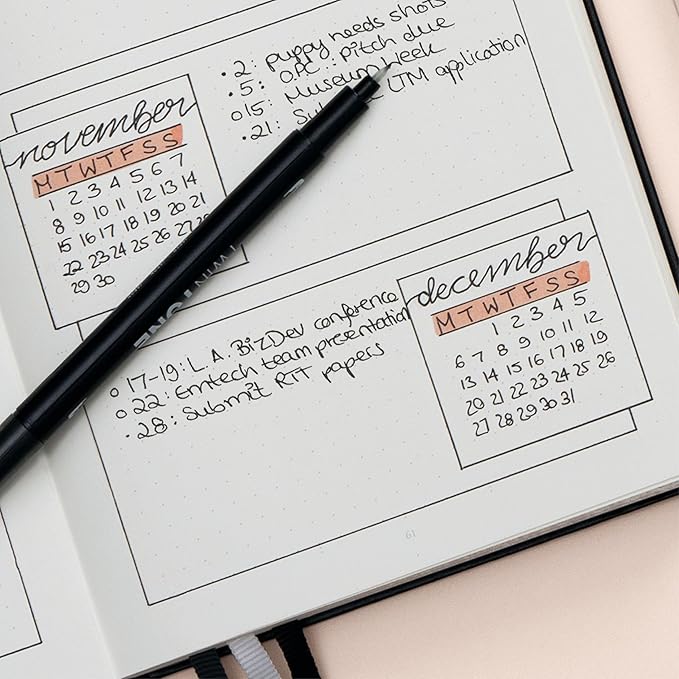 • 2: puppy needs shots
• 5: OPC: pitch due
o 15: Museum Week
• 21: LTM application
november
M T W T F S S
1 2 3 4 5 6 7
8 9 10 11 12 13 14
15 16 17 18 19 20 21
22 23 24 25 26 27
29 30
TWINTONE
o 17-19: L.A. BizDev conference
o 22: Emtech team presentation
• 28: Submit RIT papers
december
M T W T F S S
1 2 3 4 5
6 7 8 9 10 11 12
13 14 15 16 17 18 19
20 21 22 23 24 25 26
27 28 29 30 31
61